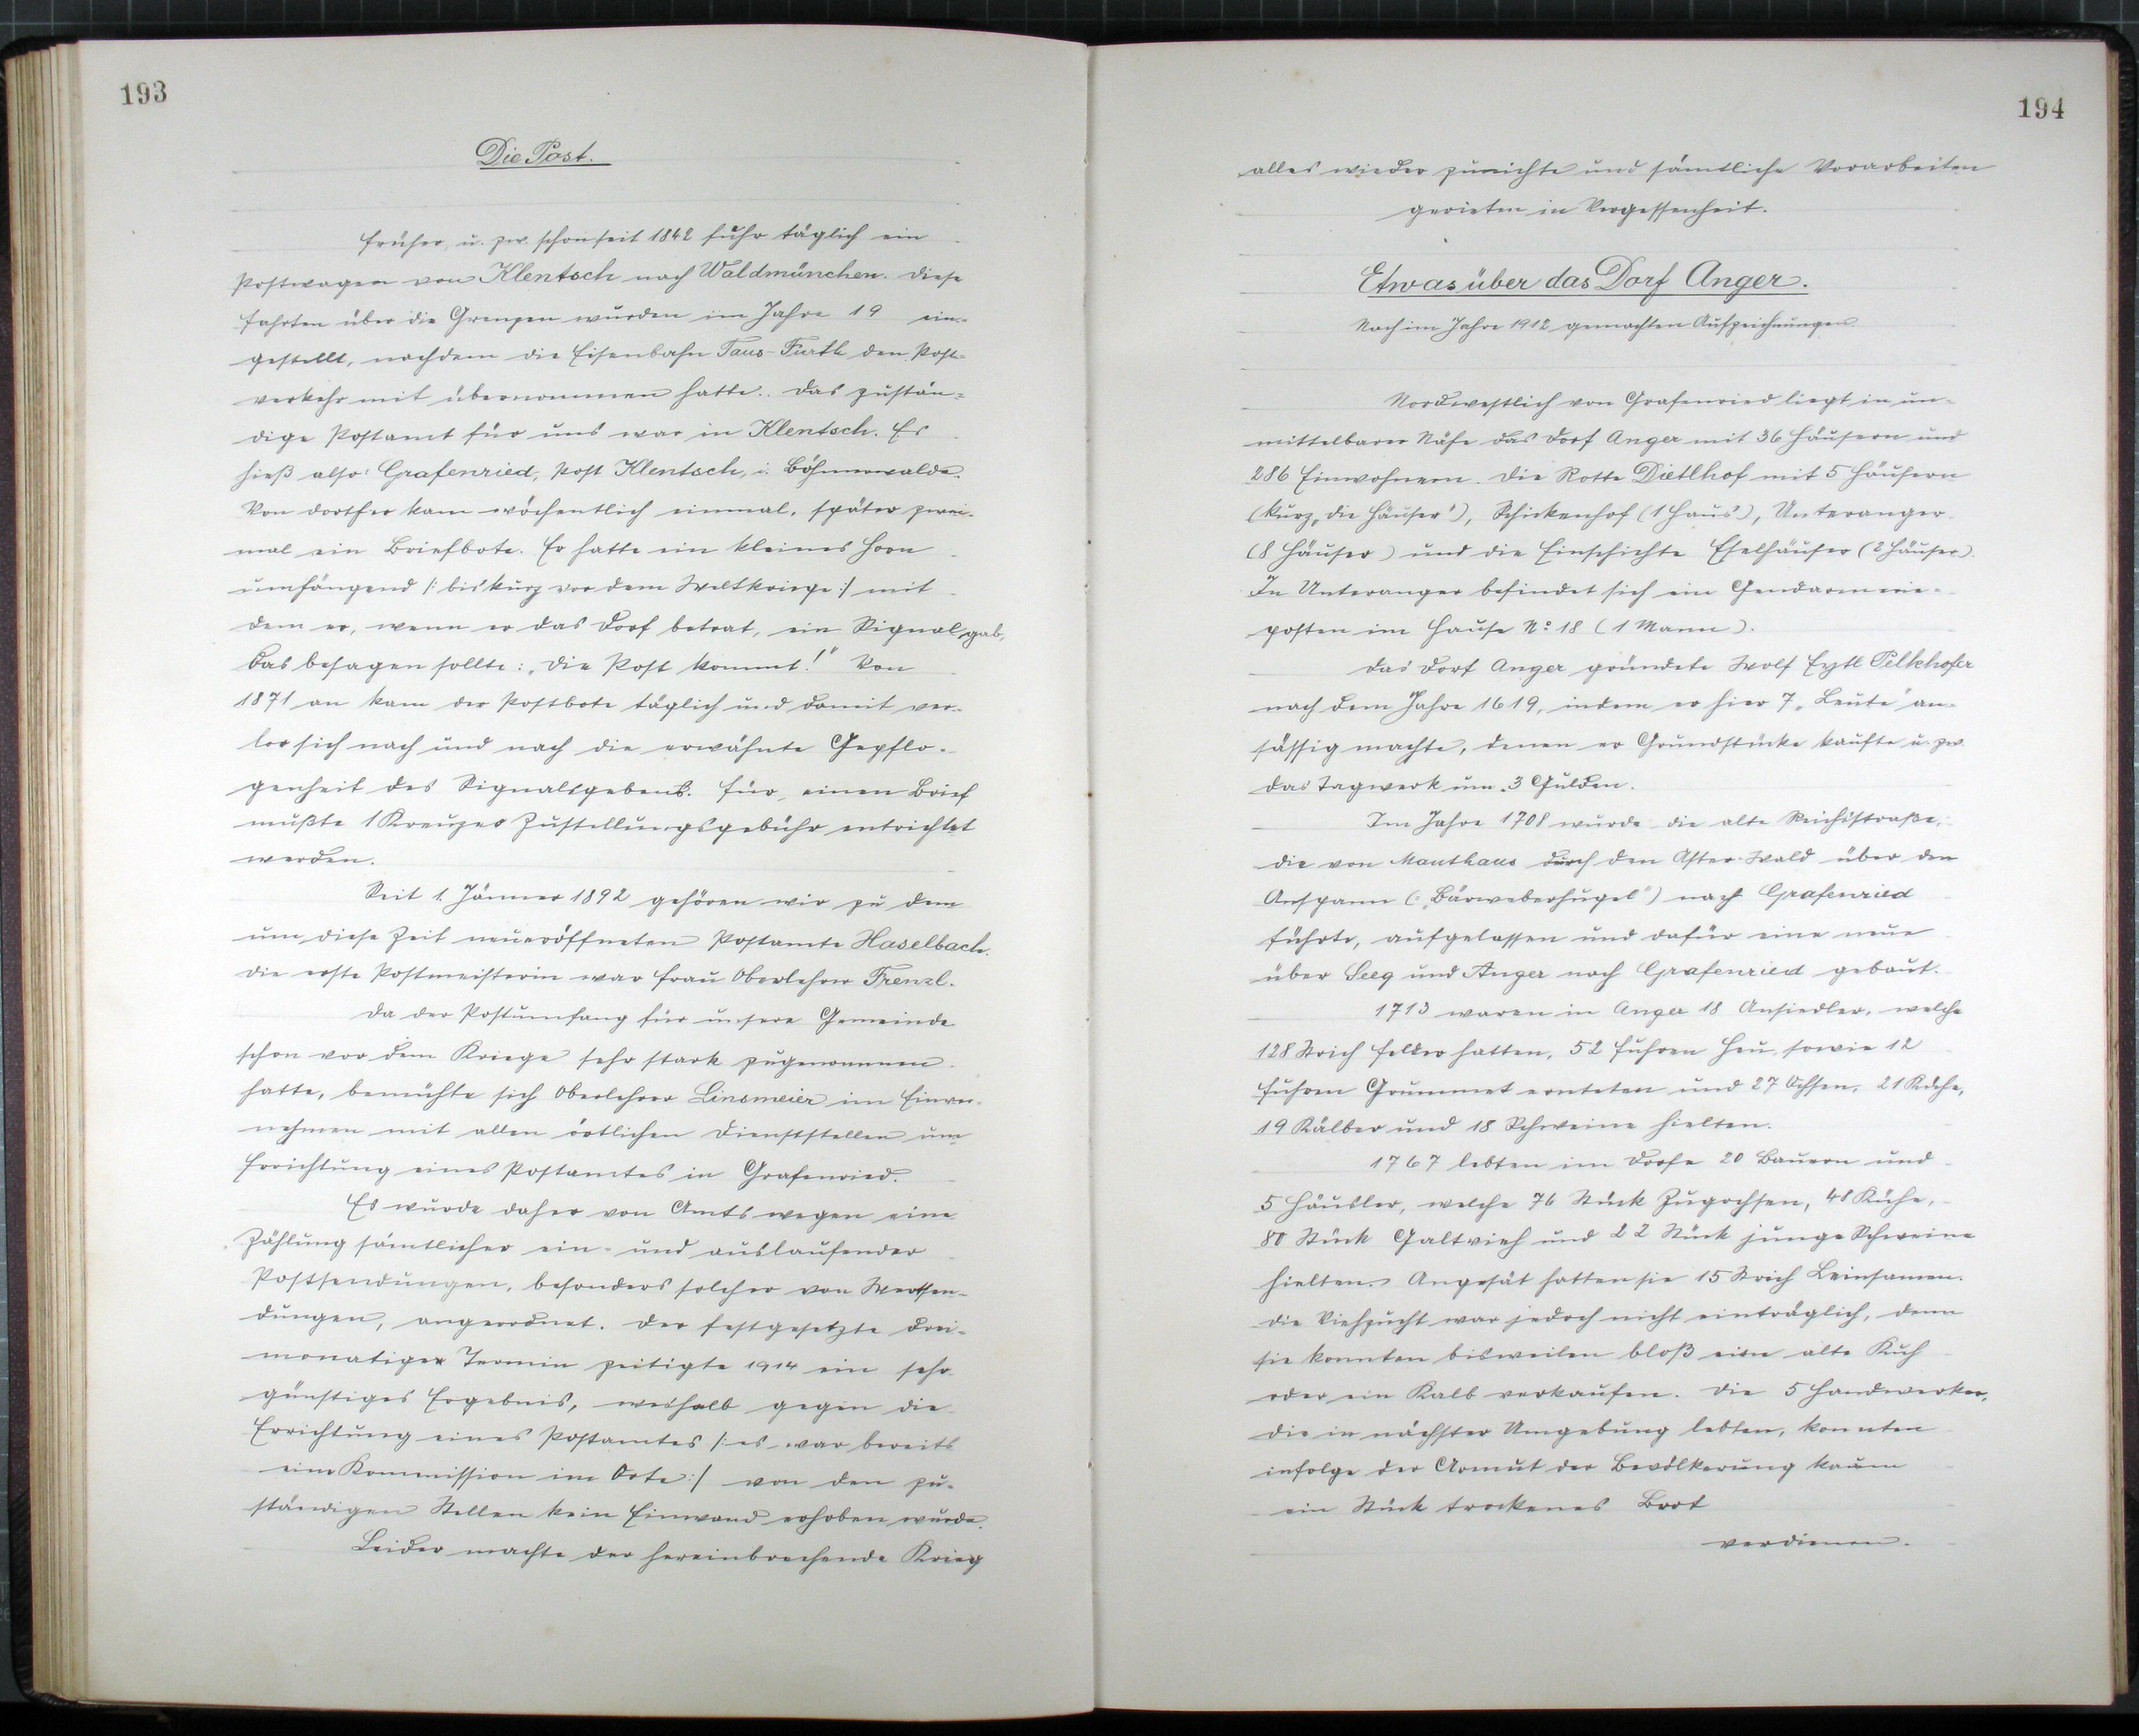 193
Die Post.
Früher, u. zw. schon seit 1842 fuhr täglich ein
Postwagen von Klentsch nach Waldmünchen. Diese
Fahrten über die Grenzen wurden im Jahre 19 ein-
gestellt, nachdem die Eisenbahn Taus-Furth den Post-
verkehr mit übernommen hatte. Das zustän-
dige Postamt für uns war in Klentsch. Es
hieß also: Grafenried, Post Klentsch, i. Böhmerwalde.
Von dorther kam wöchentlich einmal, später zwei-
mal ein Briefbote. Er hatte ein kleines Horn
umhängend /: bis kurz vor dem Weltkriege :/ mit
dem er, wenn er das Dorf betrat, ein Signal gab,
das besagen sollte: „Die Post kommt!" Von
1871 an kam der Postbote täglich und damit ver-
lor sich nach und nach die erwähnte Gepflo-
genheit des Signalgebens. Für einen Brief
mußte 1 Kreuzer Zustellungsgebühr entrichtet
werden.
Seit 1. Jänner 1892 gehören wir zu dem
um diese Zeit neueröffneten Postamte Haselbach.
Die erste Postmeisterin war Frau Oberlehrer Frenzl.
Da der Postumfang für unsere Gemeinde
schon vor dem Kriege sehr stark zugenommen
hatte, bemühte sich Oberlehrer Linsmeier im Einver-
nehmen mit allen örtlichen Dienststellen um
Errichtung eines Postamtes in Grafenried.
Es wurde daher von Amts wegen eine
Zählung sämtlicher ein- und auslaufender
Postsendungen, besonders solcher von Wertsen-
dungen, angeordnet. Der festgesetzte drei-
monatige Termin zeitigte 1914 ein sehr
günstiges Ergebnis, weshalb gegen die
Errichtung eines Postamtes /: es war bereits
eine Kommission im Orte :/ von den zu-
ständigen Stellen kein Einwand erhoben wurde.
Leider machte der hereinbrechende Krieg
194
alles wieder zunichte und sämtliche Vorarbeiten
gerieten in Vergessenheit.
Etwas über das Dorf Anger.
Nach im Jahre 1912 gemachten Aufzeichnungen.
Nordwestlich von Grafenried liegt in un-
mittelbarer Nähe das Dorf Anger mit 36 Häusern und
286 Einwohnern. Die Rotte Dietlhof mit 5 Häusern
(kurz „die Häuser"), Schickenhof (1 Haus), Unteranger
(8 Häuser) und die Einschichte Eselhäuser (2 Häuser).
In Unteranger befindet sich ein Gendarmerie-
posten im Hause No 18 (1 Mann).
Das Dorf Anger gründete Wolf Eytl Pelkhofer
nach dem Jahre 1619, indem er hier 7 „Leute" an-
sässig machte, denen er Grundstücke kaufte u. zw.
das Tagwerk um 3 Gulden.
Im Jahre 1708 wurde die alte Reichsstraße,
die von Mauthaus durch den After-Wald über den
Anspann („Bärweberhügel") nach Grafenried
führte, aufgelassen und dafür eine neue
über Seeg und Anger nach Grafenried gebaut.
1713 waren in Anger 18 Ansiedler, welche
128 Strich Felder hatten, 52 Fuhren Heu, sowie 12
Fuhren Grummet ernteten und 27 Ochsen, 21 Kühe,
19 Kälber und 18 Schweine hielten.
1767 lebten im Dorfe 20 Bauern und
5 Häusler, welche 76 Stück Zugochsen, 48 Kühe,
80 Stück Galtvieh und 22 Stück junge Schweine
hielten. Angesät hatten sie 15 Strich Leinsamen.
Die Viehzucht war jedoch nicht einträglich, denn
sie konnten bisweilen bloß eine alte Kuh
oder ein Kalb verkaufen. Die 5 Handwerker,
die in nächster Umgebung lebten, konnten
infolge der Armut der Bevölkerung kaum
ein Stück trockenes Brot
verdienen.